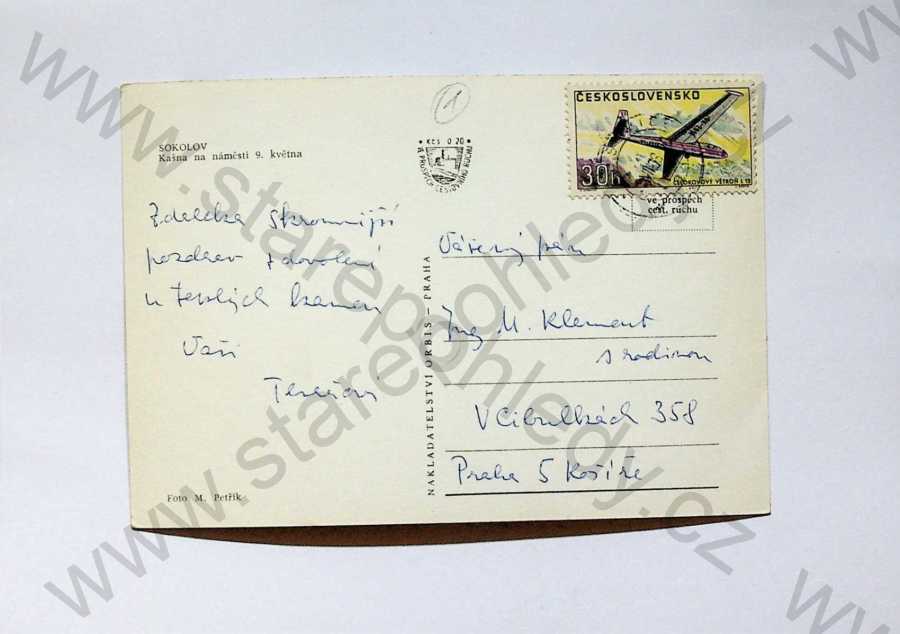 SOKOLOV
Kašna na náměstí 9. května
Kčs 0.20
VE PROSPĚCH CESTOVNÍHO RUCHU
1
ČESKOSLOVENSKO
30h
CELOKOVOVÝ VĚTROŇ L 13
ve prospěch
cest. ruchu
Zdaleka skromnější
pozdrav z dovolené
u kamen
Vaši
NAKLADATELSTVÍ ORBIS – PRAHA
Vážený pán
Ing M. Klement
s rodinou
V Cibulkách 358
Praha 5 Košíře
Foto M. Petřík
www.starepohledy.cz
www.starepohledy.cz